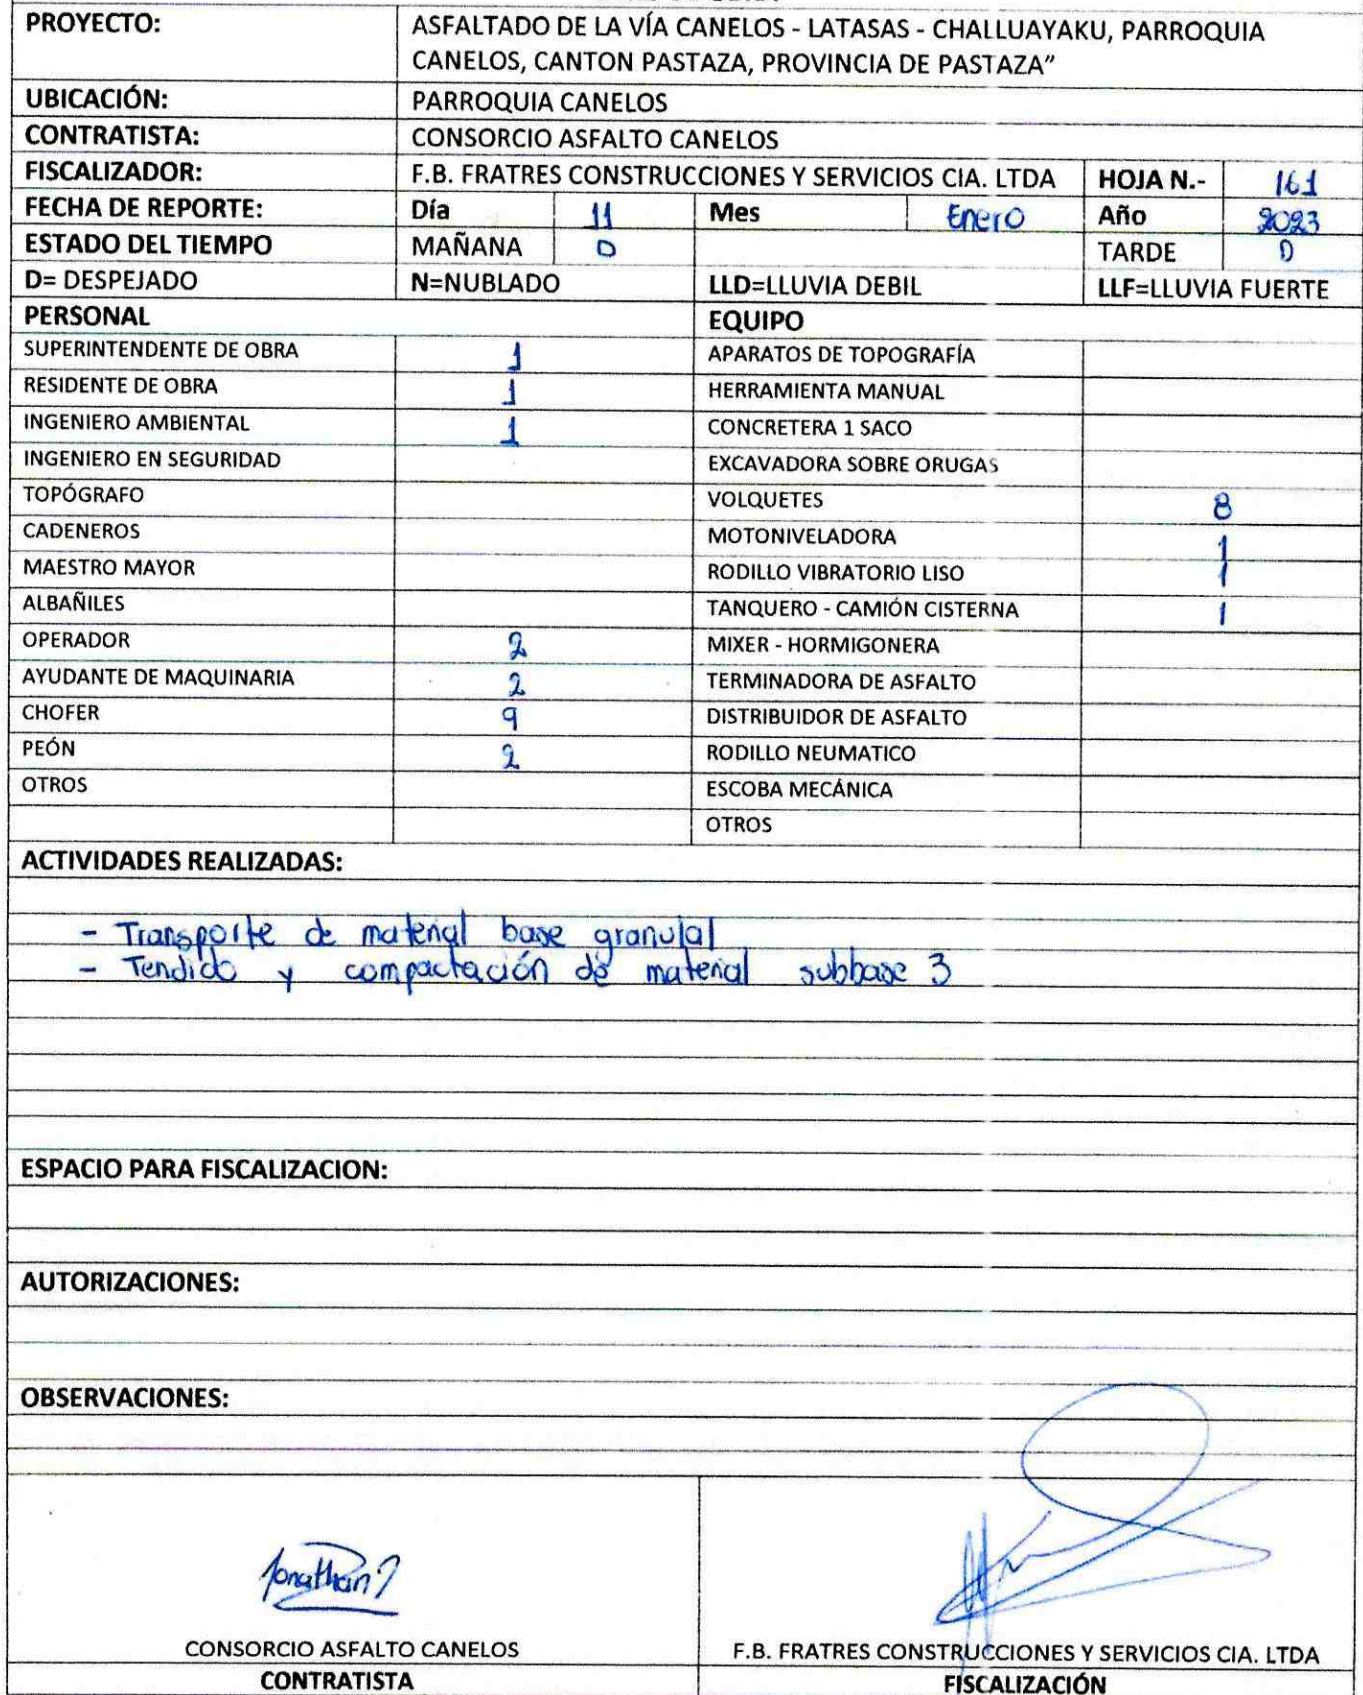 PROYECTO: ASFALTADO DE LA VÍA CANELOS - LATASAS - CHALLUAYAKU, PARROQUIA
CANELOS, CANTON PASTAZA, PROVINCIA DE PASTAZA”
UBICACIÓN: PARROQUIA CANELOS
CONTRATISTA: CONSORCIO ASFALTO CANELOS
FISCALIZADOR: F.B. FRATRES CONSTRUCCIONES Y SERVICIOS CIA. LTDA HOJA N.- 161
FECHA DE REPORTE: Día 11 Mes Enero Año 2023
ESTADO DEL TIEMPO MAÑANA D TARDE D
D= DESPEJADO N=NUBLADO LLD=LLUVIA DEBIL LLF=LLUVIA FUERTE
PERSONAL EQUIPO
SUPERINTENDENTE DE OBRA 1 APARATOS DE TOPOGRAFÍA
RESIDENTE DE OBRA 1 HERRAMIENTA MANUAL
INGENIERO AMBIENTAL 1 CONCRETERA 1 SACO
INGENIERO EN SEGURIDAD EXCAVADORA SOBRE ORUGAS
TOPÓGRAFO VOLQUETES 8
CADENEROS MOTONIVELADORA 1
MAESTRO MAYOR RODILLO VIBRATORIO LISO 1
ALBAÑILES TANQUERO - CAMIÓN CISTERNA 1
OPERADOR 2 MIXER - HORMIGONERA
AYUDANTE DE MAQUINARIA 2 TERMINADORA DE ASFALTO
CHOFER 9 DISTRIBUIDOR DE ASFALTO
PEÓN 2 RODILLO NEUMATICO
OTROS ESCOBA MECÁNICA
OTROS
ACTIVIDADES REALIZADAS:
- Transporte de material base granular
- Tendido y compactación de material subbase 3
ESPACIO PARA FISCALIZACION:
AUTORIZACIONES:
OBSERVACIONES:
CONSORCIO ASFALTO CANELOS F.B. FRATRES CONSTRUCCIONES Y SERVICIOS CIA. LTDA
CONTRATISTA FISCALIZACIÓN